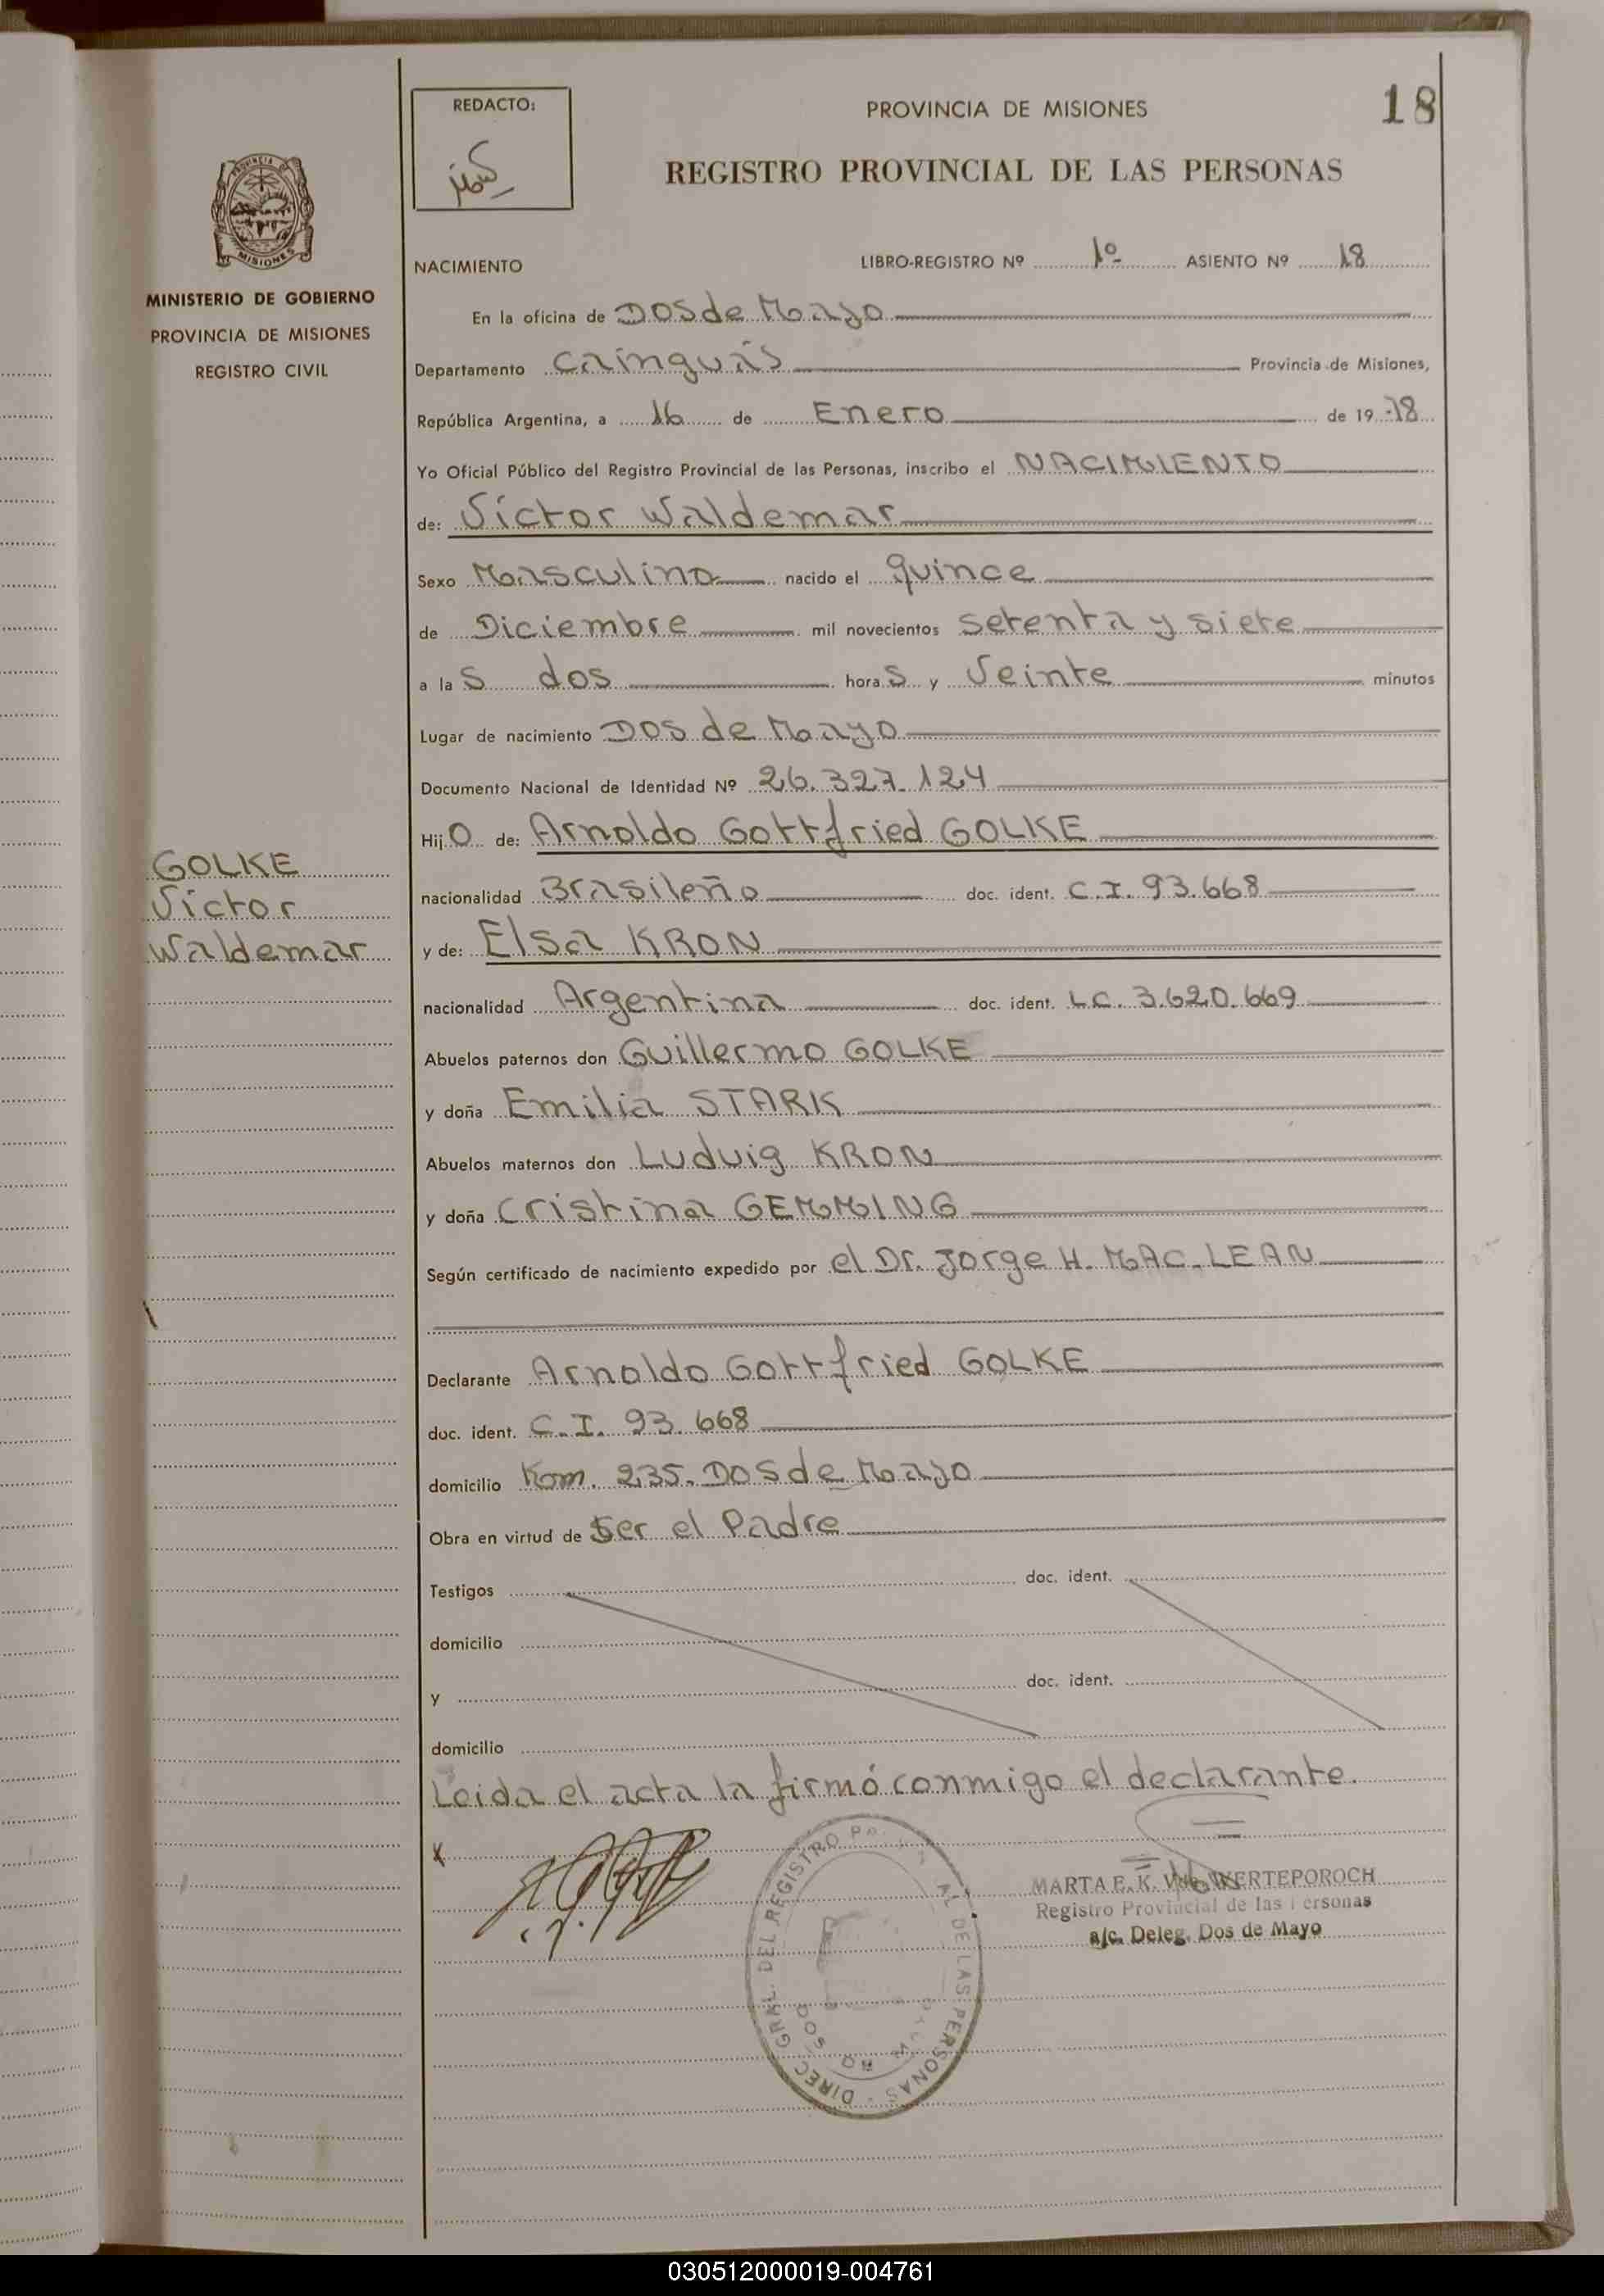 REDACTO:
PROVINCIA DE MISIONES
18
REGISTRO PROVINCIAL DE LAS PERSONAS
MISIONES
MINISTERIO DE GOBIERNO
PROVINCIA DE MISIONES
REGISTRO CIVIL
NACIMIENTO
LIBRO-REGISTRO Nº 1º ASIENTO Nº 18
En la oficina de Dos de Mayo
Departamento Cainguás Provincia de Misiones,
República Argentina, a 16 de Enero de 19 78
Yo Oficial Público del Registro Provincial de las Personas, inscribo el NACIMIENTO
de: Víctor Waldemar
Sexo Masculino nacido el quince
de Diciembre mil novecientos setenta y siete
a las dos horas y Veinte minutos
Lugar de nacimiento Dos de Mayo
Documento Nacional de Identidad Nº 26.327.124
Hijo de: Arnoldo Gottfried GOLKE
nacionalidad Brasileño doc. ident. C.I. 93.668
y de: Elsa KRON
nacionalidad Argentina doc. ident. L.C. 3.620.669
Abuelos paternos don Guillermo GOLKE
y doña Emilia STARK
Abuelos maternos don Ludvig KRON
y doña Cristina GEMMING
Según certificado de nacimiento expedido por el Dr. Jorge H. MAC-LEAN
Declarante Arnoldo Gottfried GOLKE
doc. ident. C.I. 93.668
domicilio Kom. 235. Dos de Mayo
Obra en virtud de Ser el Padre
Testigos doc. ident.
domicilio
y doc. ident.
domicilio
Leida el acta la firmó conmigo el declarante.
GOLKE
Víctor
Waldemar
x
MARTA E. K. WERTEPOROCH
Registro Provincial de las Personas
a/c. Deleg. Dos de Mayo
DIREC. GRAL. DEL REGISTRO DE LAS PERSONAS
030512000019-004761